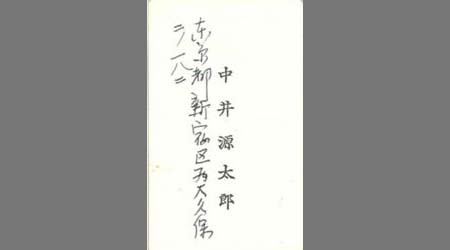 中井源太郎
东京都新宿区西大久保
二ノ一八二